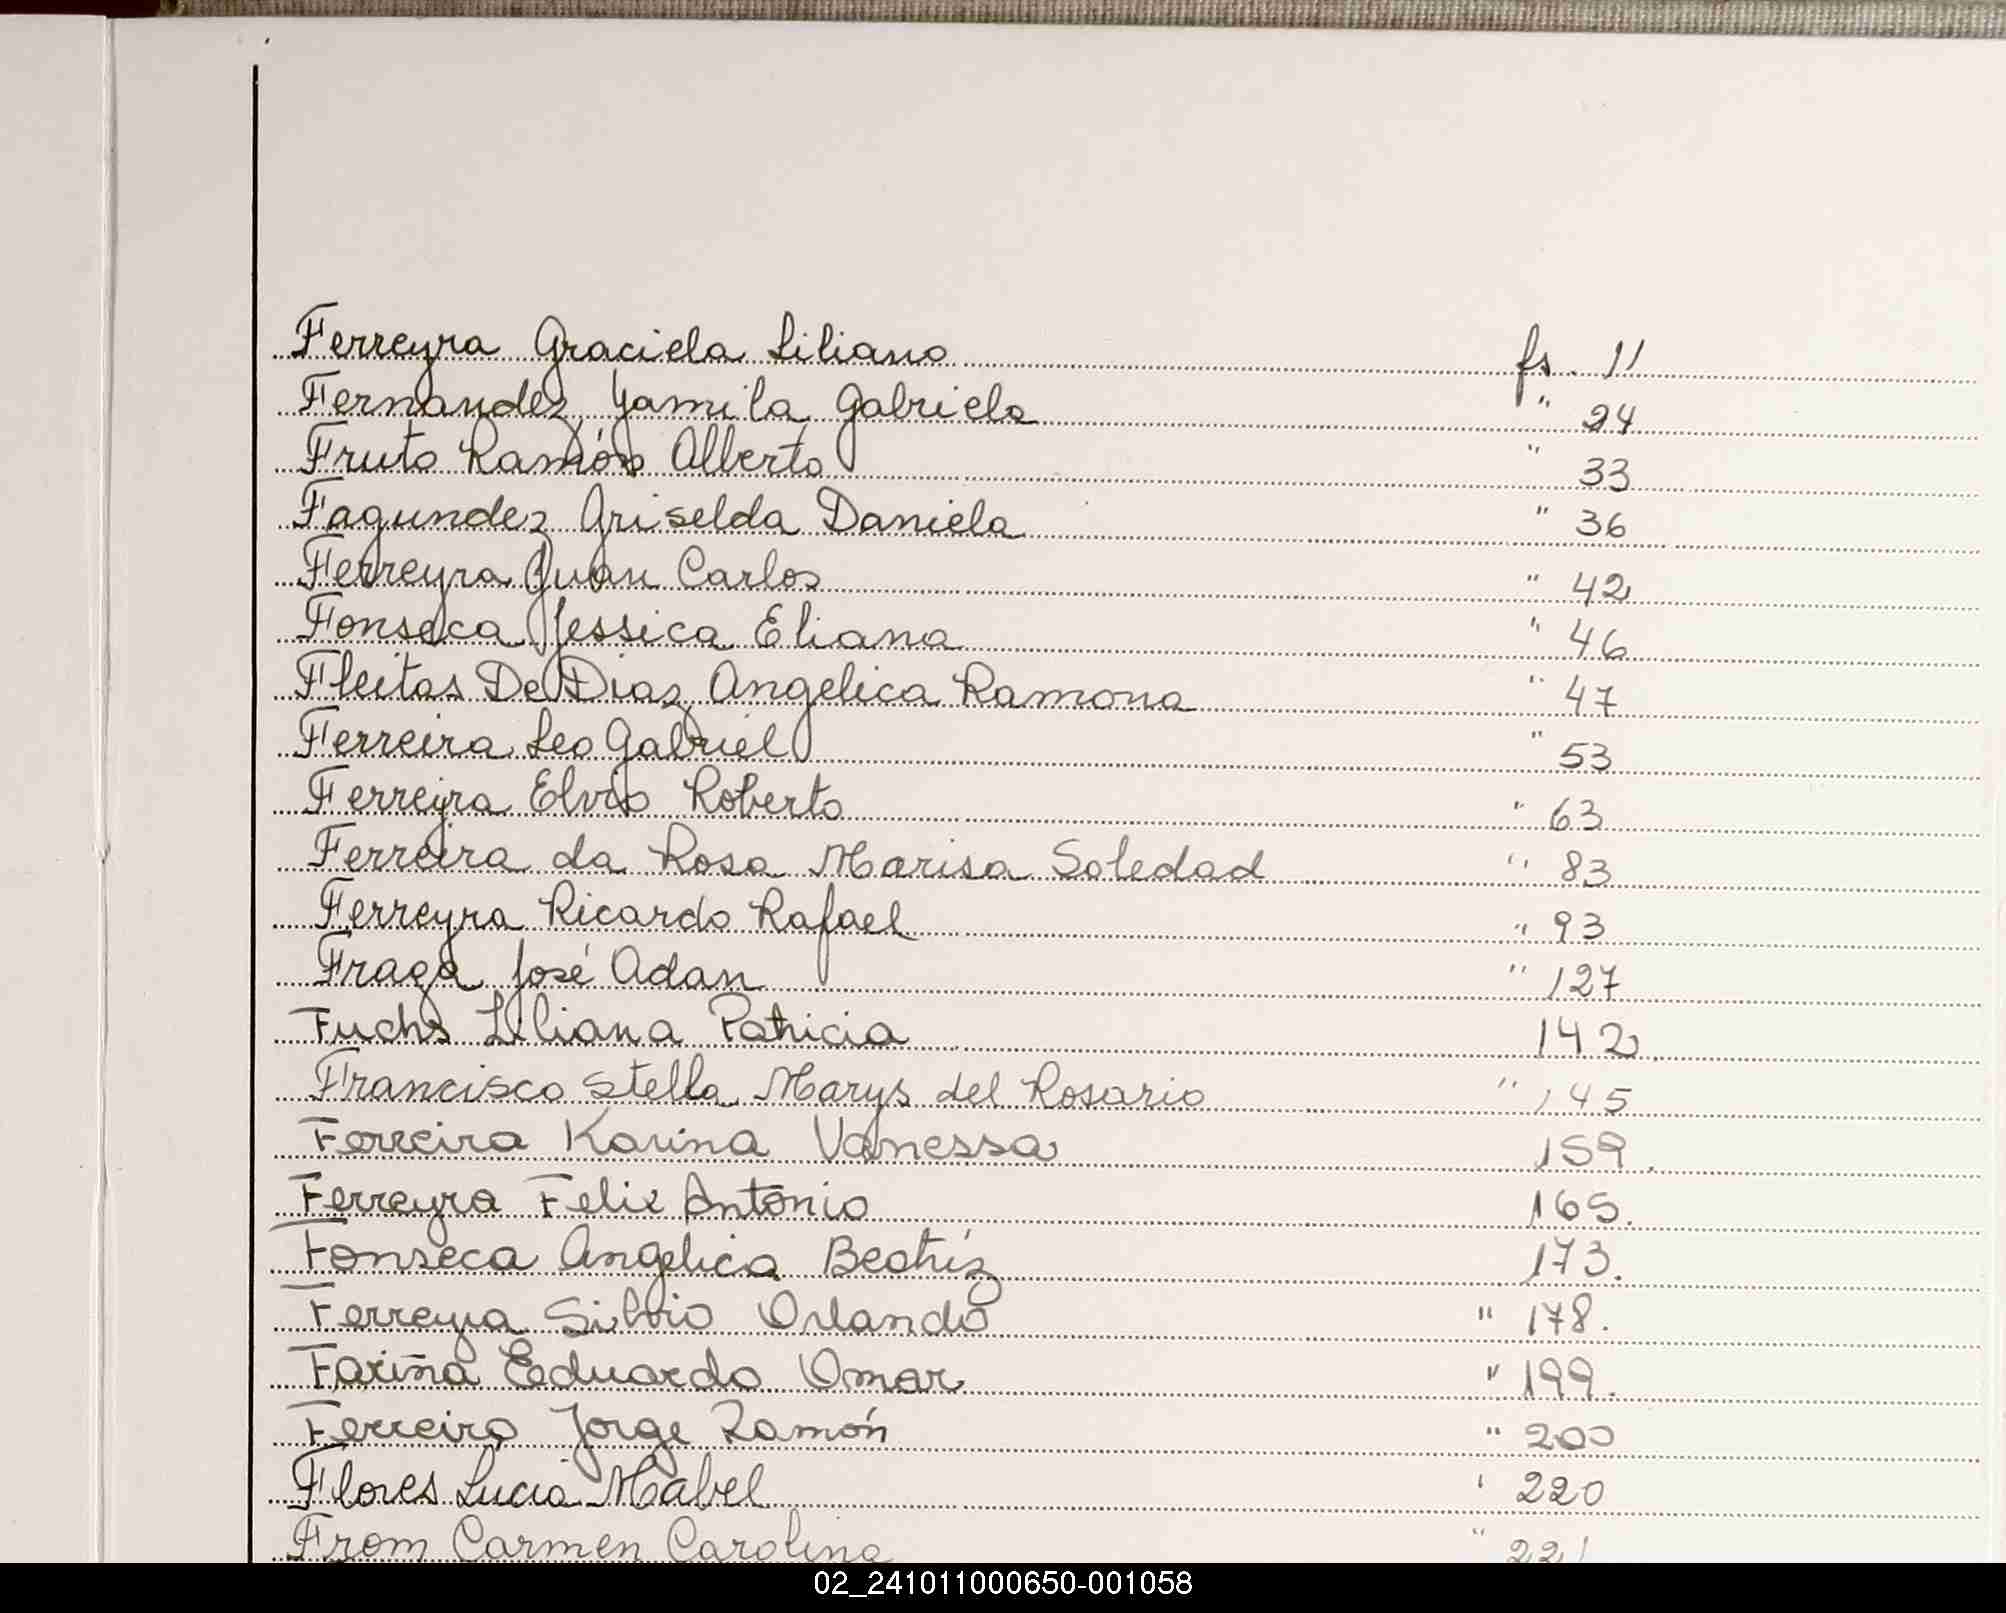 Ferreyra Graciela Liliana fs. 11
Fernandez, Yamila Gabriela " 24
Fruto Ramón Alberto " 33
Fagundez Griselda Daniela " 36
Ferreyra Juan Carlos " 42
Fonseca Jessica Eliana " 46
Fleitas De Diaz Angelica Ramona " 47
Ferreira Leo Gabriel " 53
Ferreyra Elvio Roberto " 63
Ferreira da Rosa Marisa Soledad " 83
Ferreyra Ricardo Rafael " 93
Fraga José Adan " 127
Fuchs Liliana Patricia 142
Francisco Stella Marys del Rosario " 145
Ferreira Karina Vanessa 159.
Ferreyra Felix Antonio 165.
Fonseca Angelica Beatríz 173.
Ferreyra Silvio Orlando " 178.
Fariña Eduardo Omar " 199.
Ferreira Jorge Ramón " 200
Flores Lucia Mabel " 220
From Carmen Carolina " 221
02_241011000650-001058